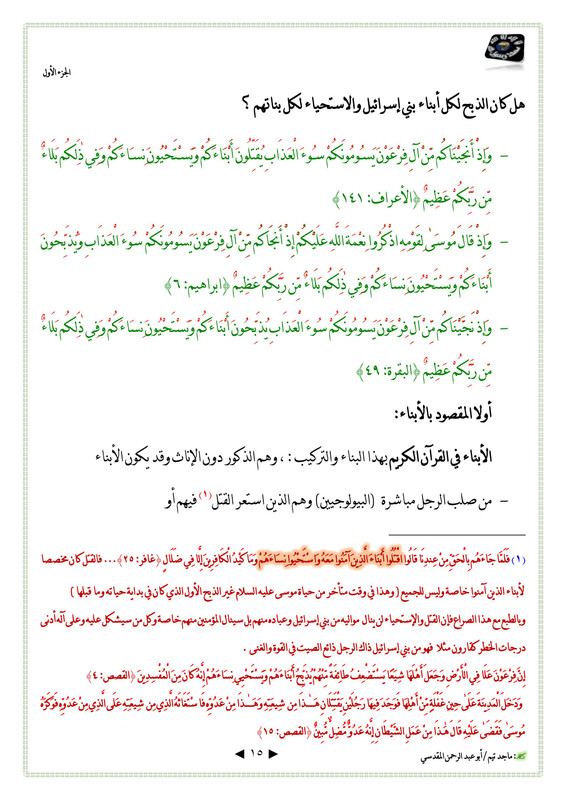 الجزء الأول
هل كان الذبح لكل أبناء بني إسرائيل والاستحياء لكل بناتهم ؟
– وَإِذْ أَنجَيْنَاكُم مِّنْ آلِ فِرْعَوْنَ يَسُومُونَكُمْ سُوءَ الْعَذَابِ يُقَتِّلُونَ أَبْنَاءَكُمْ وَيَسْتَحْيُونَ نِسَاءَكُمْ وَفِي ذَٰلِكُم بَلَاءٌ
مِّن رَّبِّكُمْ عَظِيمٌ ﴿الأعراف: ١٤١﴾
– وَإِذْ قَالَ مُوسَىٰ لِقَوْمِهِ اذْكُرُوا نِعْمَةَ اللَّهِ عَلَيْكُمْ إِذْ أَنجَاكُم مِّنْ آلِ فِرْعَوْنَ يَسُومُونَكُمْ سُوءَ الْعَذَابِ وَيُذَبِّحُونَ
أَبْنَاءَكُمْ وَيَسْتَحْيُونَ نِسَاءَكُمْ وَفِي ذَٰلِكُم بَلَاءٌ مِّن رَّبِّكُمْ عَظِيمٌ ﴿ابراهيم: ٦﴾
– وَإِذْ نَجَّيْنَاكُم مِّنْ آلِ فِرْعَوْنَ يَسُومُونَكُمْ سُوءَ الْعَذَابِ يُذَبِّحُونَ أَبْنَاءَكُمْ وَيَسْتَحْيُونَ نِسَاءَكُمْ وَفِي ذَٰلِكُم بَلَاءٌ
مِّن رَّبِّكُمْ عَظِيمٌ ﴿البقرة: ٤٩﴾
أولا المقصود بالأبناء:
الأبناء في القرآن الكريم بهذا البناء والتركيب : ، وهم الذكور دون الإناث وقد يكون الأبناء
– من صلب الرجل مباشرة (البيولوجيين) وهم الذين استعر القتل (١) فيهم أو
(١) فَلَمَّا جَاءَهُم بِالْحَقِّ مِنْ عِندِنَا قَالُوا اقْتُلُوا أَبْنَاءَ الَّذِينَ آمَنُوا مَعَهُ وَاسْتَحْيُوا نِسَاءَهُمْ وَمَا كَيْدُ الْكَافِرِينَ إِلَّا فِي ضَلَالٍ ﴿غافر: ٢٥﴾... فالقتل كان مخصصا
لأبناء الذين آمنوا خاصة وليس للجميع ( وهذا في وقت متأخر من حياة موسى عليه السلام غير الذبح الأول الذي كان في بداية حياته وما قبلها )
وبالطبع مع هذا الصراع فإن القتل والإستحياء لن ينال مواليه من بني إسرائيل وعباده منهم بل سينال المؤمنين منهم خاصة وكل من سيشكل عليه وعلى آله أدنى
درجات الخطر كقارون مثلا فهو من بني إسرائيل ذاك الرجل ذائع الصيت في القوة والغنى .
إِنَّ فِرْعَوْنَ عَلَا فِي الْأَرْضِ وَجَعَلَ أَهْلَهَا شِيَعًا يَسْتَضْعِفُ طَائِفَةً مِّنْهُمْ يُذَبِّحُ أَبْنَاءَهُمْ وَيَسْتَحْيِي نِسَاءَهُمْ إِنَّهُ كَانَ مِنَ الْمُفْسِدِينَ ﴿القصص: ٤﴾
وَدَخَلَ الْمَدِينَةَ عَلَىٰ حِينِ غَفْلَةٍ مِّنْ أَهْلِهَا فَوَجَدَ فِيهَا رَجُلَيْنِ يَقْتَتِلَانِ هَٰذَا مِن شِيعَتِهِ وَهَٰذَا مِنْ عَدُوِّهِ فَاسْتَغَاثَهُ الَّذِي مِن شِيعَتِهِ عَلَى الَّذِي مِنْ عَدُوِّهِ فَوَكَزَهُ
مُوسَىٰ فَقَضَىٰ عَلَيْهِ قَالَ هَٰذَا مِنْ عَمَلِ الشَّيْطَانِ إِنَّهُ عَدُوٌّ مُّضِلٌّ مُّبِينٌ ﴿القصص: ١٥﴾
: ماجد تيم / أبو عبد الرحمن المقدسي
◄ ١٥ ►